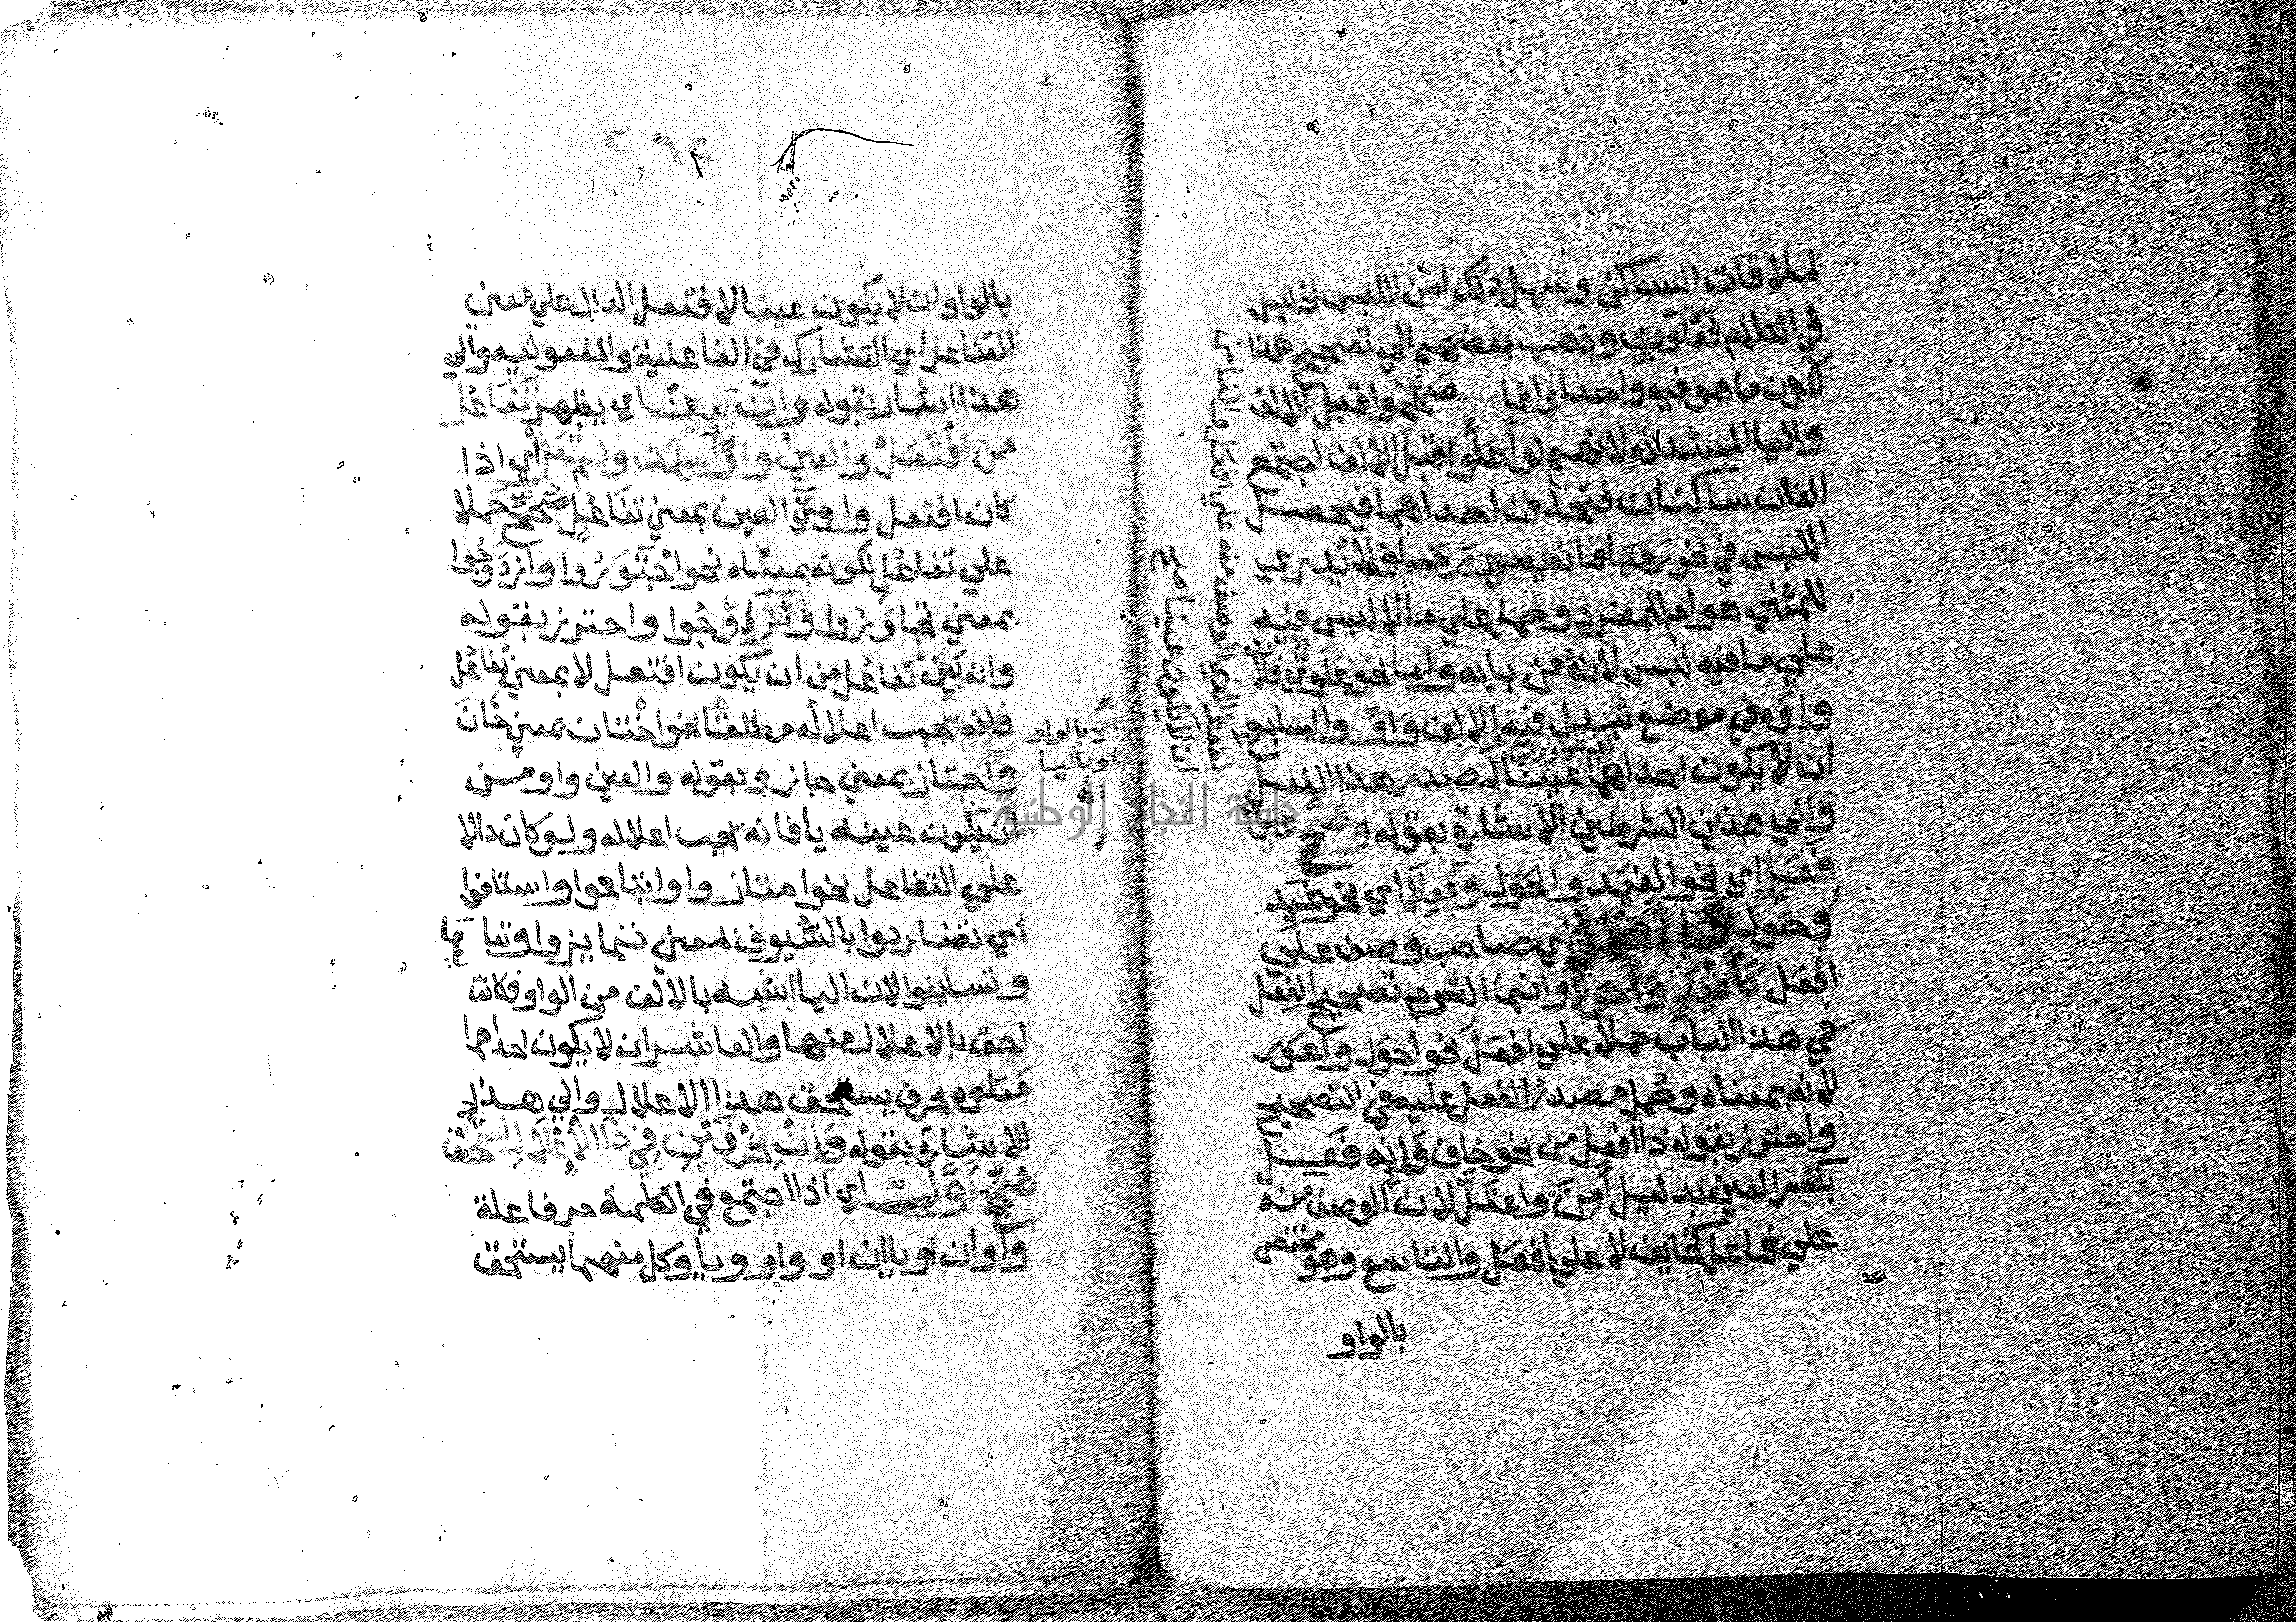 لملاقات الساكن وسهل ذلك امن اللبس اذ ليس
في الكلام فَعَلَوْت وذهب بعضهم الي تصحيح هذا
لكون ما هو فيه واحدا وانما صَحَّحُوا قبل الالف
واليا المشددة لانهم لو اَعَلُّوا قبل الالف اجتمع
الفان ساكنان فتحذف احداهما فيحصل
اللبس في نحو رَمَيَا فانه يصير رَمَا فلا يُدري
للمثني هو ام للمفرد وحمل علي ما لا لبس فيه
علي ما فيه لبس لانه من بابه واما نحو عَلَوِيّ فلان
واوَه في موضع تبدل فيه الالف وَاوً والسابع
اي الواو واليا
ان لا يكون احداهما عينا لمصدر هذا الفعل
والي هذين الشرطين الاشارة بقوله وصَحَّ عين
فَعَل اي نحو الغَيَد والحَوَل وفَعِلَا اي نحو غَيِد
وحَوِل ذا اَفْعَل اي صاحب وصف علي
افعل كاَغْيَدٍ وَاَحْوَلا وانما التزم تصحيح الفعل
في هذا الباب حملا علي افعَلَّ نحو احوَل واعوَر
لانه بمعناه وحُمل مصدرُ الفعل عليه في التصحيح
واحترز بقوله ذا افعل من نحو خاف فَانه فَعِل
بكسر العين بدليل اَمِنَ واعتَلَّ لان الوصف منه
علي فاعل كخايف لا علي افعَل والتاسع وهو مختص
بالواو
ان لا يكون عينا
اي بالواو
او باليا
٢٩٢
بالواو ان لا يكون عينا لافتعل الدال علي معني
التفاعل اي التشارك في الفاعلية والمفعولية والي
هذا اشار بقوله وان يَبِنْ اي يظهر تَفَاعُل
من افْتَعَلْ والعينُ واوٌ سَلِمَت ولم تُعَل اي اذا
كان افتعل واويَّ العين بمعني تفاعُلٍ صُحِّحَ حملا
علي تفاعُل لكونه بمعناه نحو اجْتَوَرُوا وازدَوَجُوا
بمعني تجاوَرُوا وتَزَاوَجُوا واحترز بقوله
وان يَبِنْ تفاعُل من ان يكون افتعل لا بمعني تفاعُل
فانه يجب اعلاله مطلقًا نحو اخْتَان بمعني خَانَ
واجتاز بمعني جاز وبقوله والعين واو من
ان يكون عينه يا فانه يجب اعلاله ولو كان دالا
علي التفاعل نحو امتاز وا وابتاعوا واستافوا
اي تضاربوا بالسُّيوف بمعني تمايزوا وتبايعوا
وتسايفوا لان اليا اشبه بالالف من الواو فكانت
احق بالاعلال منها والعاشر ان لا يكون احداهما
متلوه بحرف يستحق هذا الاعلال والي هذا
الاشارة بقوله وَاِنْ لِحَرْفَيْنِ ذَا الْاِعْلَالُ اسْتُحِق
صُحِّحَ اَوَّلٌ اي اذا اجتمع في الكلمة حرفا علة
واوان او ياان او واو ويا وكل منهما يستحق